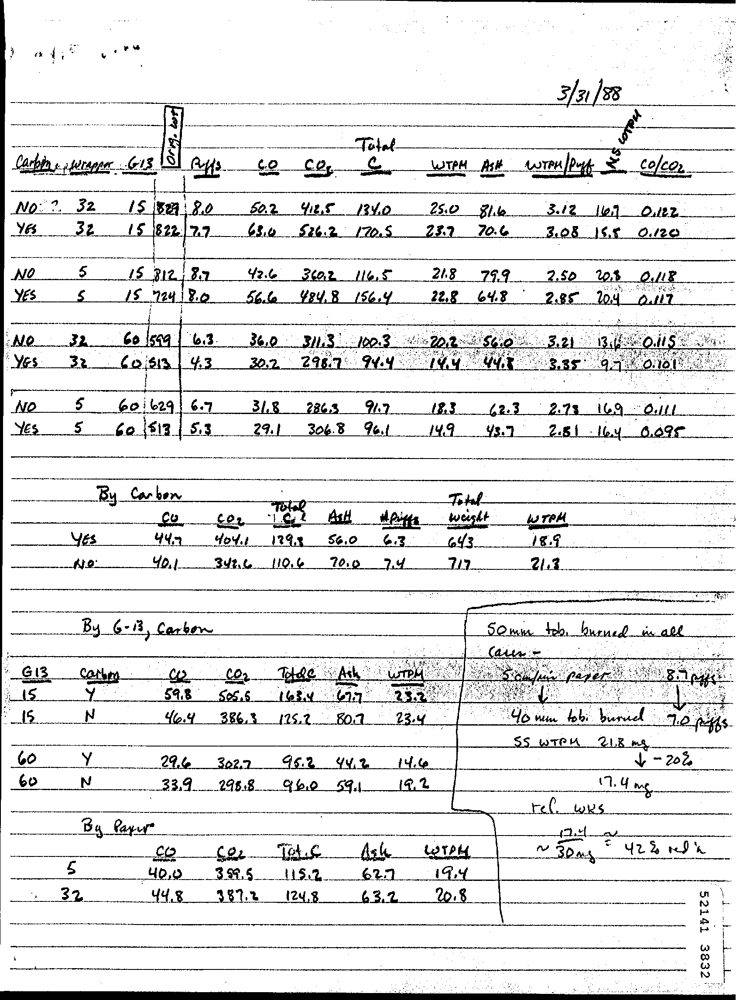 3/31/88
Total
Carbon Wrapper G13 Orig. wt Puffs CO CO2 C WTPM Ash WTPM/Puff NS WTPM CO/CO2
NO ? 32 15 829 8.0 50.2 412.5 134.0 25.0 81.6 3.12 16.7 0.122
YES 32 15 822 7.7 63.0 526.2 170.5 23.7 70.6 3.08 15.5 0.120
NO 5 15 812 8.7 42.6 360.2 116.5 21.8 79.9 2.50 20.3 0.118
YES 5 15 724 8.0 56.6 484.8 156.4 22.8 64.8 2.85 20.4 0.117
NO 32 60 599 6.3 36.0 311.3 100.3 20.2 56.0 3.21 13.6 0.115
YES 32 60 513 4.3 30.2 298.7 94.4 14.4 44.8 3.35 9.7 0.101
NO 5 60 629 6.7 31.8 286.3 91.7 18.3 62.3 2.73 16.9 0.111
YES 5 60 513 5.3 29.1 306.8 96.1 14.9 43.7 2.81 16.4 0.095
By Carbon
Total Total
CO CO2 C Ash # Puffs weight WTPM
YES 44.7 404.1 129.3 56.0 6.3 643 18.9
NO 40.1 342.6 110.6 70.0 7.4 717 21.3
By G-13, Carbon
G13 Carbon CO CO2 Total C Ash WTPM
15 Y 59.8 505.5 163.4 67.7 23.2
15 N 46.4 386.3 125.2 80.7 23.4
60 Y 29.6 302.7 95.2 44.2 14.6
60 N 33.9 298.8 96.0 59.1 19.2
By Paper
CO CO2 Tot. C Ash WTPM
5 40.0 359.5 115.2 62.7 19.4
32 44.8 387.2 124.8 63.2 20.8
50mm tob. burned in all
cases -
5 cm/min paper 8.7 puffs
↓ ↓
40 mm tob. burned 7.0 puffs
SS WTPM 21.8 mg
↓ - 20%
17.4 mg
ref. wks
~ 17.4 / 30 mg ≈ 42% red'n
52141 3832